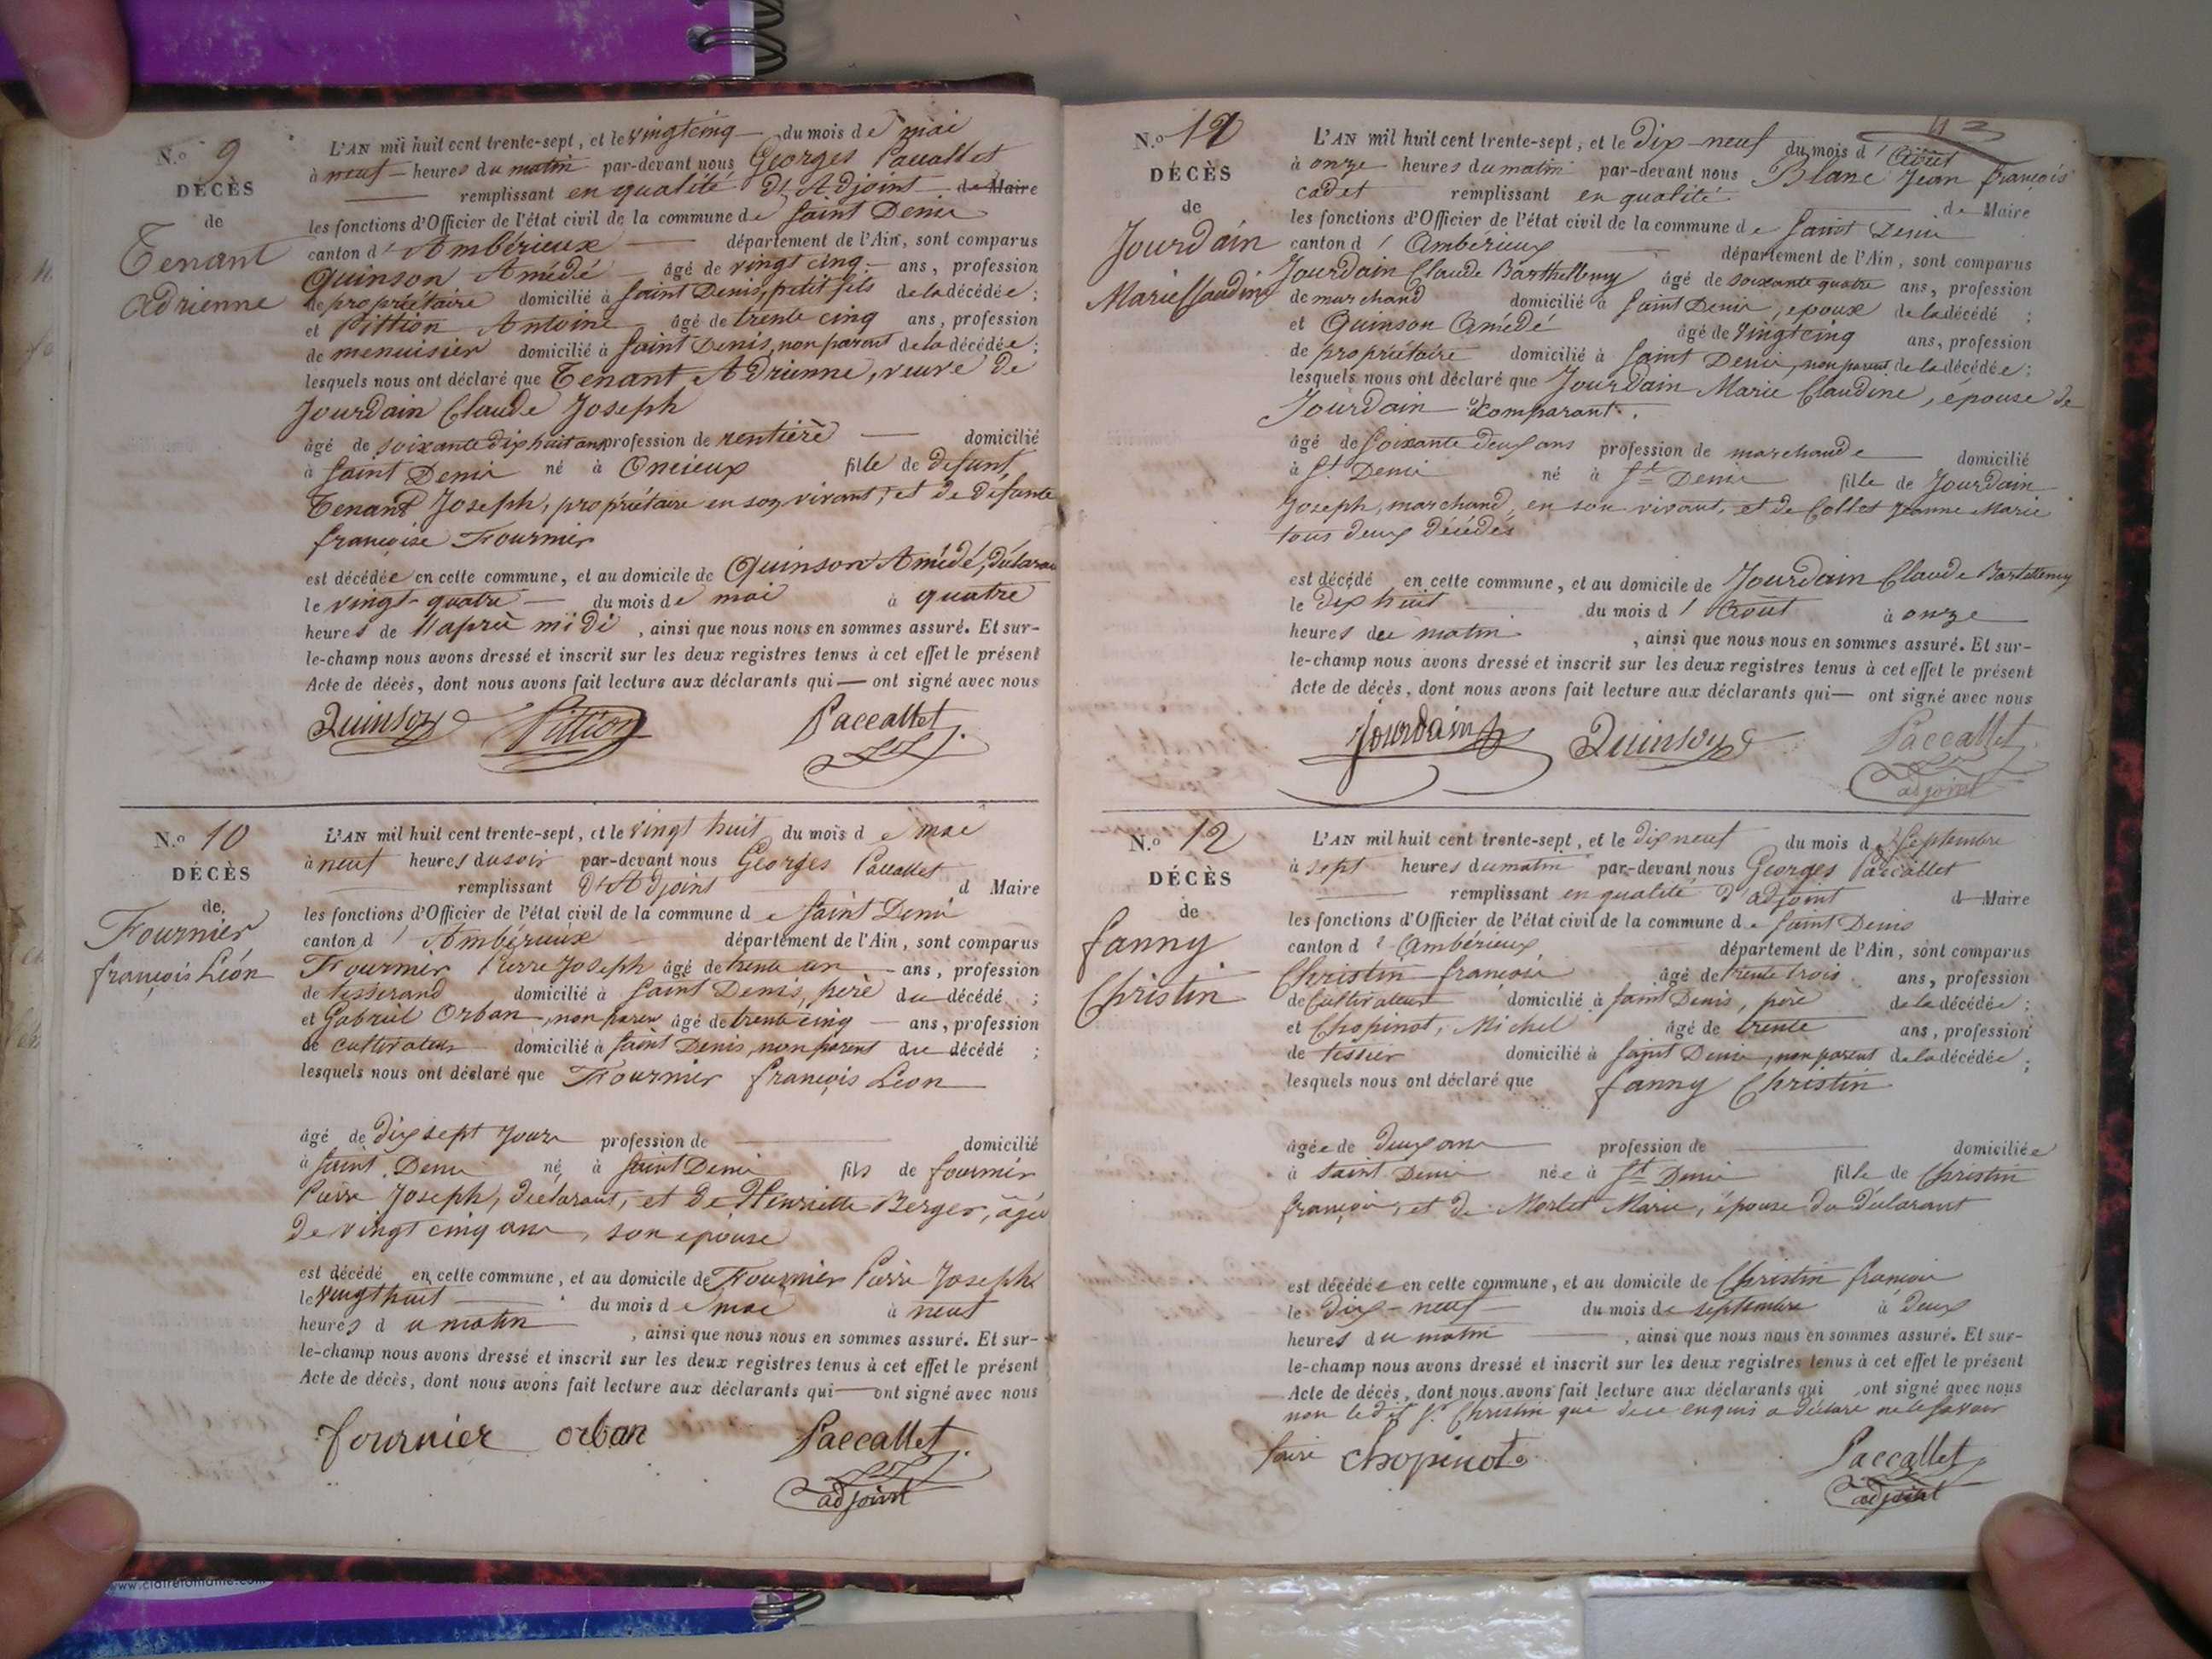 N.o 9
DÉCÈS
de
Tenant
Adrienne
L'AN mil huit cent trente-sept, et le vingt cinq du mois de mai
à neuf heures du matin par-devant nous Georges Paccallet
remplissant en qualité d'Adjoint de Maire
les fonctions d'Officier de l'état civil de la commune de Saint Denis
canton d'Ambérieux département de l'Ain, sont comparus
Quinson Amédé âgé de vingt cinq ans, profession
de propriétaire domicilié à Saint Denis, petit fils de la décédée;
et Pittion Antoine âgé de trente cinq ans, profession
de menuisier domicilié à Saint Denis, non parent de la décédée;
lesquels nous ont déclaré que Tenant Adrienne, veuve de
Jourdain Claude Joseph
âgé de soixante dix huit ans profession de rentière domicilié
à Saint Denis né à Oncieux fille de défunt
Tenant Joseph, propriétaire en son vivant, et de défunte
françoise Fournier
est décédée en cette commune, et au domicile de Quinson Amédé,
le vingt-quatre du mois de mai à quatre
heures de l'après midi, ainsi que nous nous en sommes assuré. Et sur-
le-champ nous avons dressé et inscrit sur les deux registres tenus à cet effet le présent
Acte de décès, dont nous avons fait lecture aux déclarants qui — ont signé avec nous
Quinson Pittion Paccallet
N.o 10
DÉCÈS
de
Fournier
françois Léon
L'AN mil huit cent trente-sept, et le vingt huit du mois de mai
à neuf heures du soir par-devant nous Georges Paccallet
remplissant d'Adjoint d Maire
les fonctions d'Officier de l'état civil de la commune de Saint Denis
canton d'Ambérieux département de l'Ain, sont comparus
Fournier Pierre Joseph âgé de trente un ans, profession
de tisserand domicilié à Saint Denis, père du décédé;
et Gabriel Orban, non parent âgé de trente cinq ans, profession
de cultivateur domicilié à Saint Denis, non parent du décédé;
lesquels nous ont déclaré que Fournier françois Léon
âgé de dix sept jours profession de domicilié
à Saint Denis né à Saint Denis fils de fournier
Pierre Joseph, déclarant, et de Henriette Berger, âgée
de vingt cinq ans, son épouse
est décédé en cette commune, et au domicile de Fournier Pierre Joseph
le vingt huit du mois de mai à neuf
heures du matin, ainsi que nous nous en sommes assuré. Et sur-
le-champ nous avons dressé et inscrit sur les deux registres tenus à cet effet le présent
Acte de décès, dont nous avons fait lecture aux déclarants qui — ont signé avec nous
fournier orban Paccallet
adjoint
www.clairefontaine.com
N.o
DÉCÈS
de
Jourdain
Marie Claudine
L'AN mil huit cent trente-sept, et le dix-neuf du mois d'Août
à onze heures du matin par-devant nous Blanc Jean françois
cadet remplissant en qualité de Maire
les fonctions d'Officier de l'état civil de la commune de Saint Denis
canton d'Ambérieux département de l'Ain, sont comparus
Jourdain Claude Barthellemy âgé de soixante quatre ans, profession
de marchand domicilié à Saint Denis, époux de la décédé;
et Quinson Amédé âgé de vingt cinq ans, profession
de propriétaire domicilié à Saint Denis, non parent de la décédée;
lesquels nous ont déclaré que Jourdain Marie Claudine, épouse de
Jourdain comparant.
âgé de Soixante deux ans profession de marchande domicilié
à St. Denis né à St Denis fille de Jourdain
Joseph, marchand, en son vivant, et de Collet Jeanne Marie
tous deux décédés
est décédé en cette commune, et au domicile de Jourdain Claude Barthellemy
le dix huit du mois d'Août à onze
heures du matin, ainsi que nous nous en sommes assuré. Et sur-
le-champ nous avons dressé et inscrit sur les deux registres tenus à cet effet le présent
Acte de décès, dont nous avons fait lecture aux déclarants qui — ont signé avec nous
Jourdain Quinson Paccallet
adjoint
N.o 12
DÉCÈS
de
fanny
Christin
L'AN mil huit cent trente-sept, et le dix neuf du mois de Septembre
à sept heures du matin par-devant nous Georges Paccallet
remplissant en qualité d'adjoint d Maire
les fonctions d'Officier de l'état civil de la commune de Saint Denis
canton d'Ambérieux département de l'Ain, sont comparus
Christin françois âgé de trente trois ans, profession
de Cultivateur domicilié à Saint Denis, père de la décédée;
et Chopinot, Michel âgé de trente ans, profession
de tissier domicilié à Saint Denis, non parent de la décédée;
lesquels nous ont déclaré que fanny Christin
âgée de deux ans profession de domiciliée
à Saint Denis née à St Denis fille de Christin
françois, et de Morlet Marie, épouse du déclarant
est décédée en cette commune, et au domicile de Christin françois
le dix-neuf du mois de septembre à deux
heures du matin, ainsi que nous nous en sommes assuré. Et sur-
le-champ nous avons dressé et inscrit sur les deux registres tenus à cet effet le présent
Acte de décès, dont nous avons fait lecture aux déclarants qui ont signé avec nous
non ledit Sr. Christin que de ce enquis a déclaré ne le savoir
faire chopinot Paccallet
adjoint